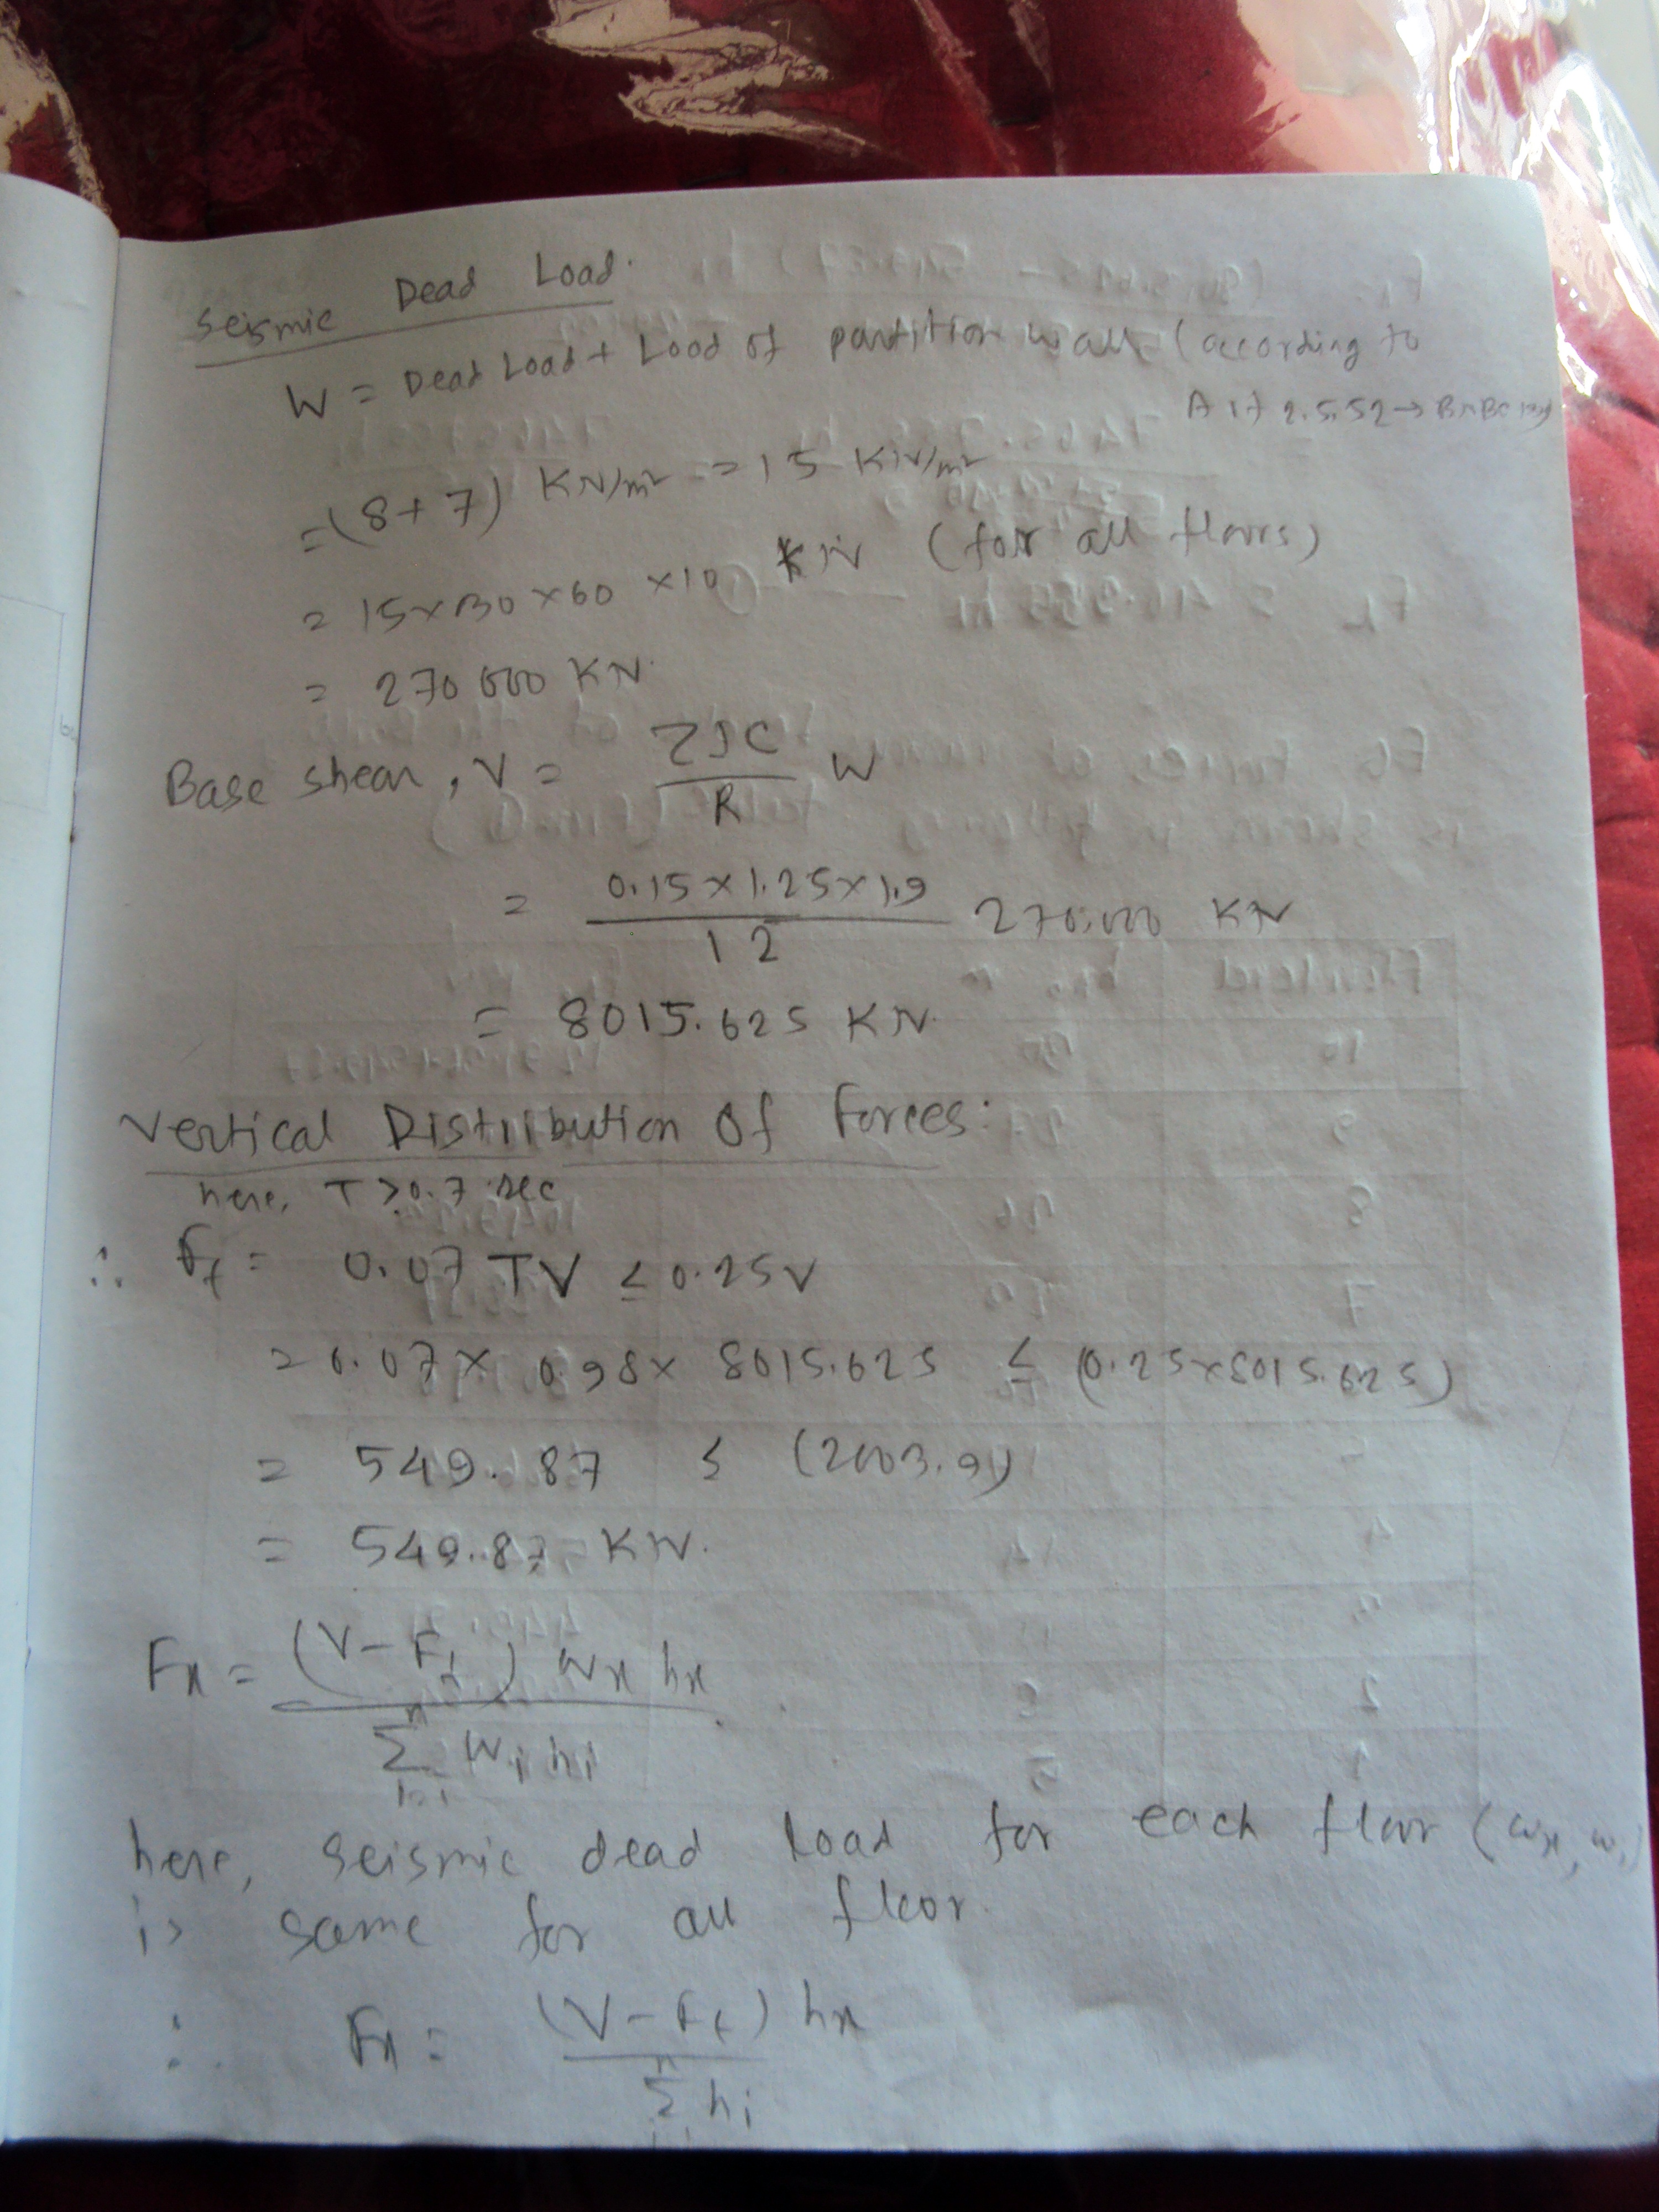 Seismic Dead Load.
W = Dead Load + Load of partition wall (according to
Art 2.5.5.2 → BNBC
= (8+7) KN/m² = 15 KN/m²
= 15×30×60 ×10 KN (for all floors)
= 270 000 KN.
Base shear, V = ZIC/R W
= 0.15×1.25×1.9/12 270,000 KN
= 8015.625 KN.
Vertical Distribution Of Forces:
here, T > 0.7 sec
∴ Ft = 0.07 TV ≤ 0.25V
= 0.07× 0.98× 8015.625 ≤ (0.25×8015.625)
= 549.87 ≤ (2003.91)
= 549.87 KN.
Fx = (V-Ft) wx hx / Σ wi hi
here, seismic dead load for each floor (wx, wi)
is same for all floor.
∴ Fx = (V-Ft) hx / Σ hi